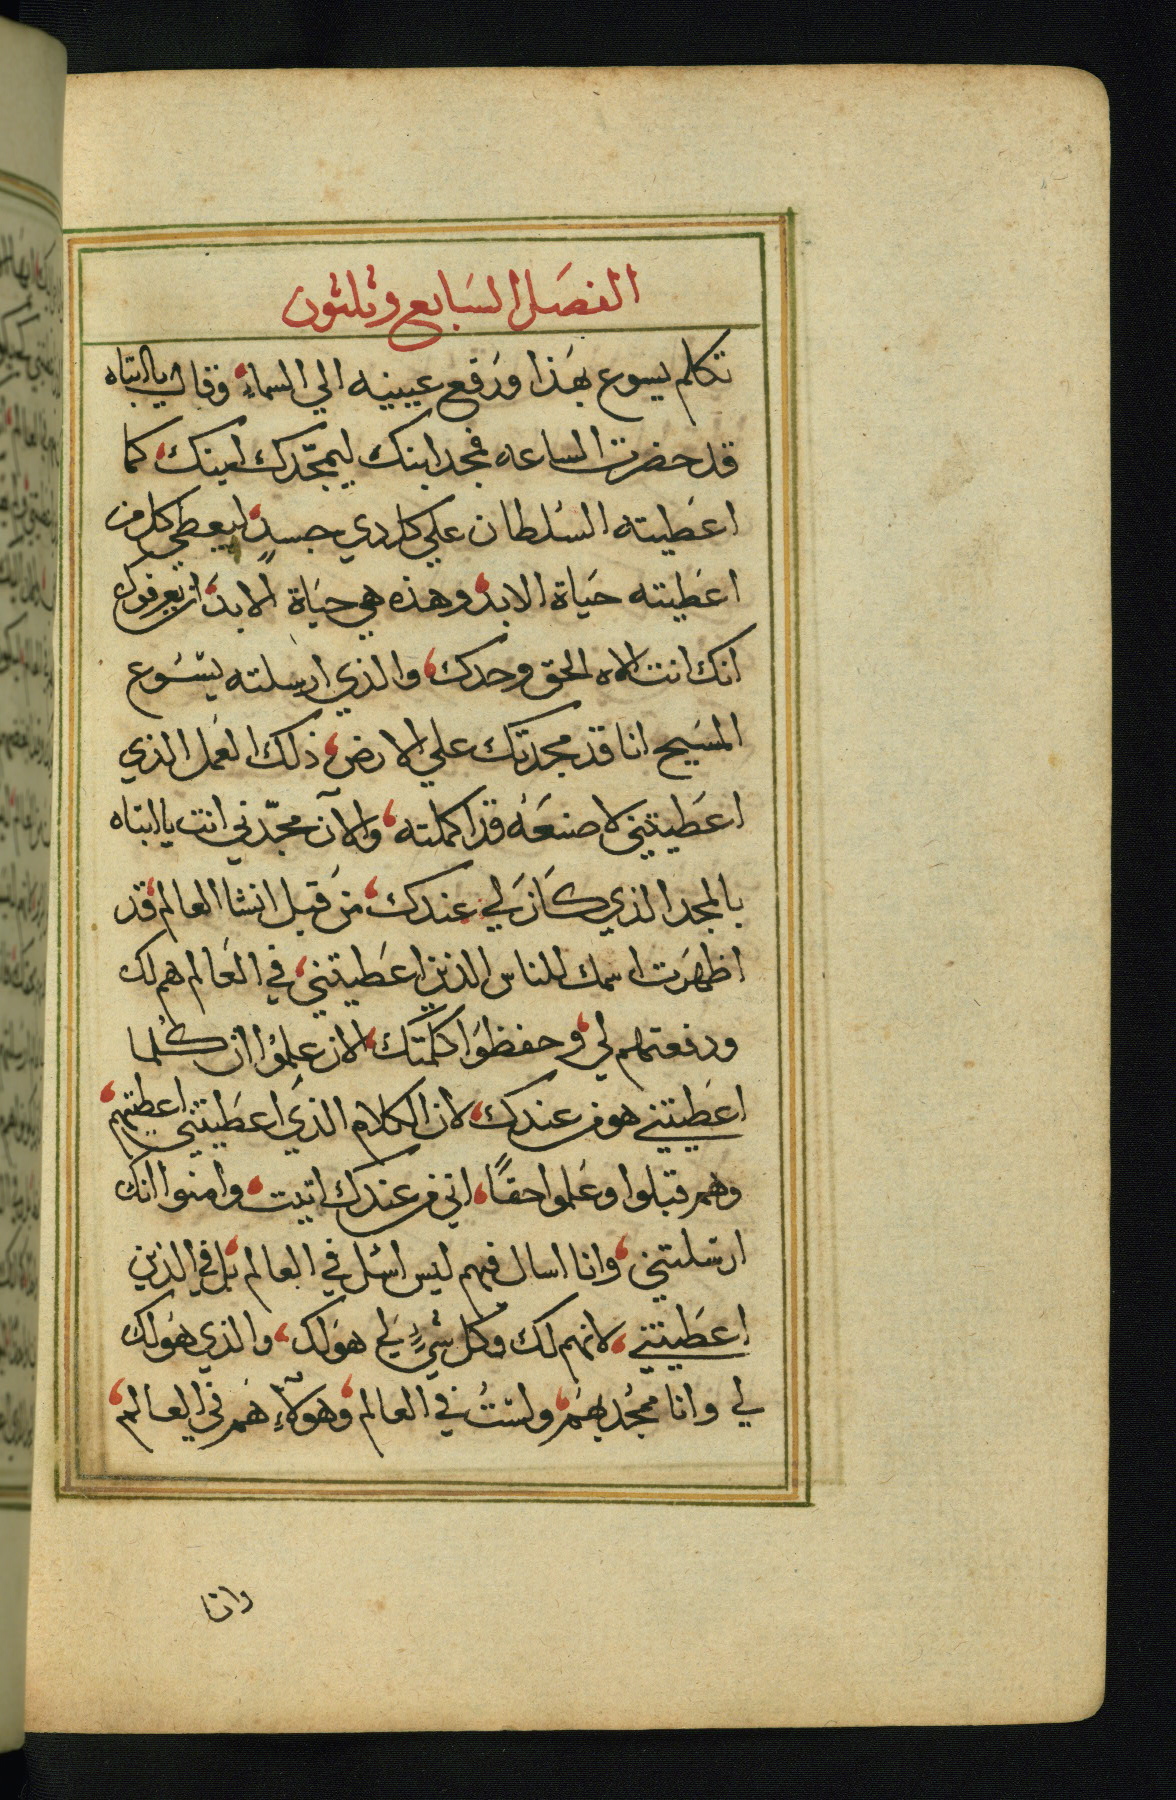 الفصل السابع وثلثون
تكلم يسوع بهذا ورفع عيينيه الي السماء وقال يا ابتاه
قد حضرت الساعه فمجد ابنك ليمجّدك ابنك كما
اعطيته السلطان علي كل دي جسدٍ ليعطي كل من
اعطيته حياة الابد وهذه هي حياة الابد ان يعرفوك
انك انت الاه الحق وحدك والذي ارسلته يسوع
المسيح انا قد مجدتك علي الارض ذلك العمل الذي
اعطيتني لاصنعه قد اكملته والآن مجّدني انت يا ابتاه
بالمجد الذي كان لي عندك من قبل انشا العالم قد
اظهرت اسمك للناس الذين اعطيتني في العالم هم لك
ودفعتهم لي وحفظوا كلمتك الان علموا ان كلما
اعطيتني هو من عندك لان الكلام الذي اعطيتني اعطيتهم
وهم قبلوا وعلموا حقًا اني من عندك اتيت وامنوا انك
ارسلتني وانا اسال فيهم ليس اسل في العالم بل في الذين
اعطيتني لانهم لك وكل شيءٍ لي هو لك والذي هو لك
لي وانا ممجد بهم ولستُ في العالم وهولآء هم في العالم
وانا